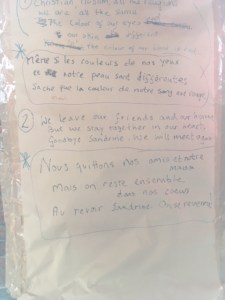 ① Christian, Listen all the religions
we are all the same
The colour of my eyes
my skin different
The colour of my blood is red
Même si les couleurs de nos yeux
et notre peau sont différentes
Sache que la couleur de notre sang est rouge
② We leave our friends and we house
but we stay together in our hearts
Goodbye Sandrine. We will meet again
Nous quittons nos amis et notre
maison
Mais on reste ensemble
dans nos cœurs
Au revoir Sandrine On se reverra